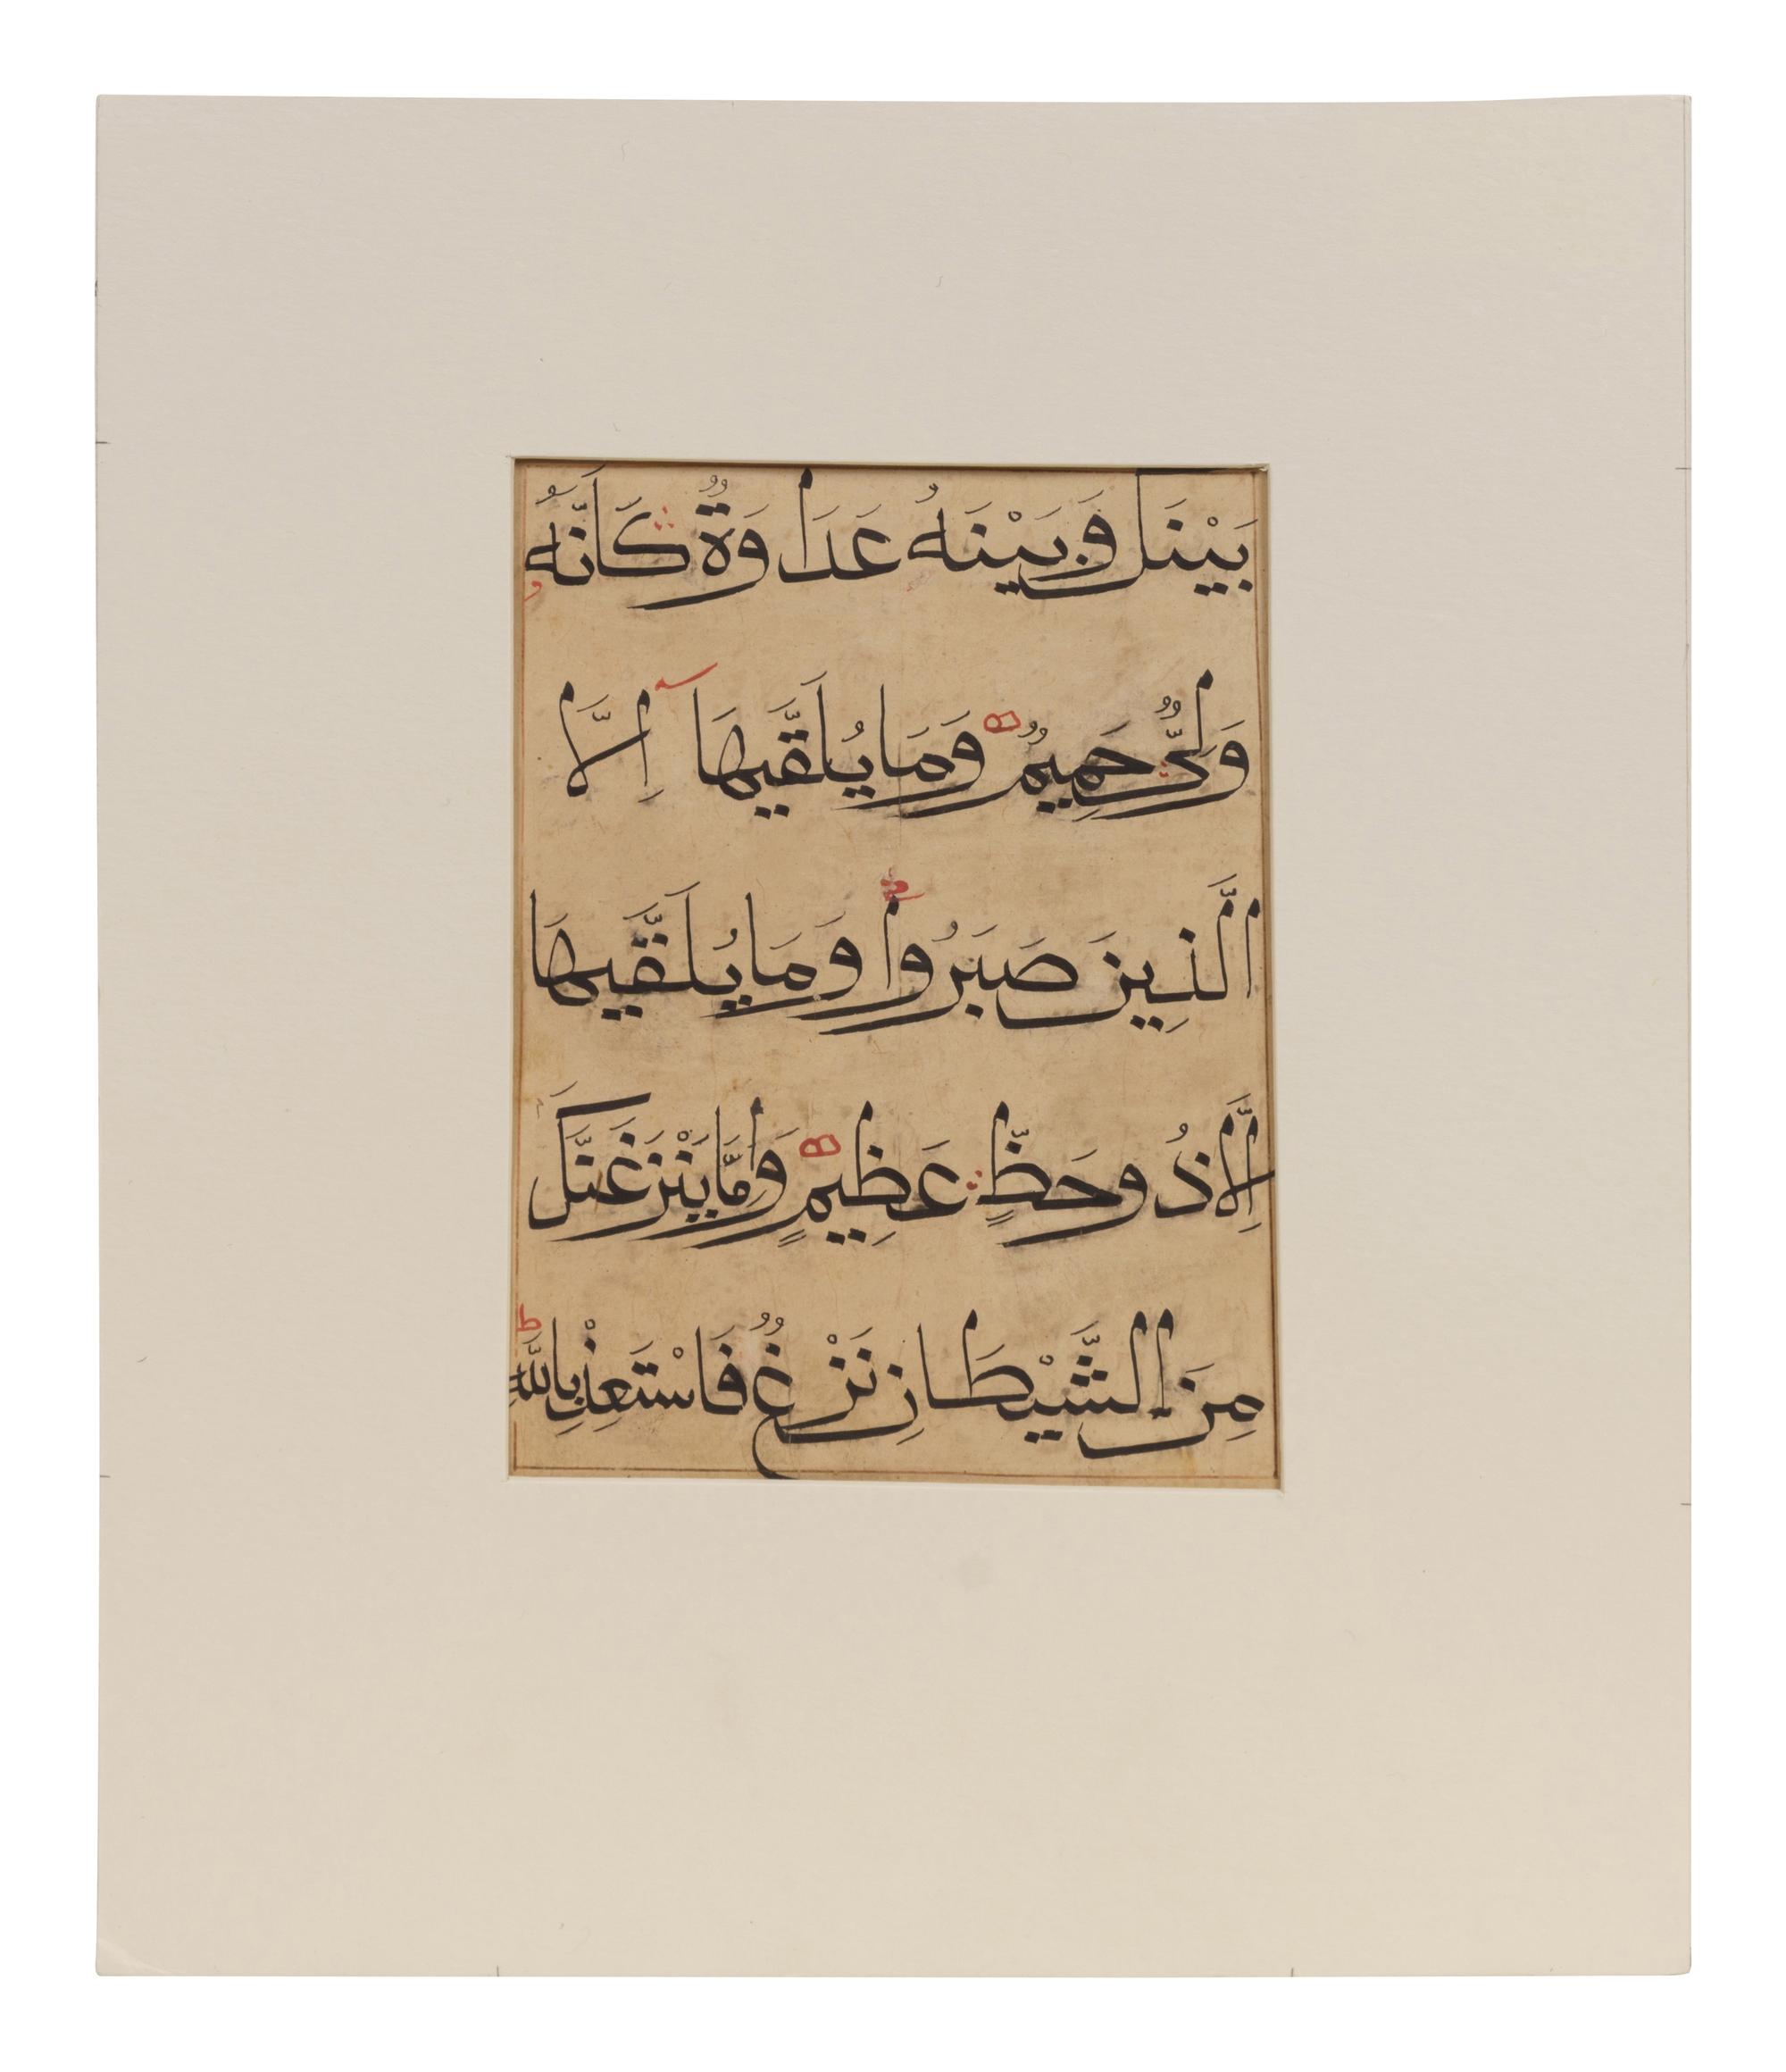 بَيْنَكَ وَبَيْنَهُ عَدَاوَةٌ كَأَنَّهُ
وَلِيٌّ حَمِيمٌ وَمَا يُلَقَّيهَا إِلَّا
الَّذِينَ صَبَرُوا وَمَا يُلَقَّيهَا
إِلَّا ذُو حَظٍّ عَظِيمٍ وَإِمَّا يَنْزَغَنَّكَ
مِنَ الشَّيْطَانِ نَزْغٌ فَاسْتَعِذْ بِاللَّهِ